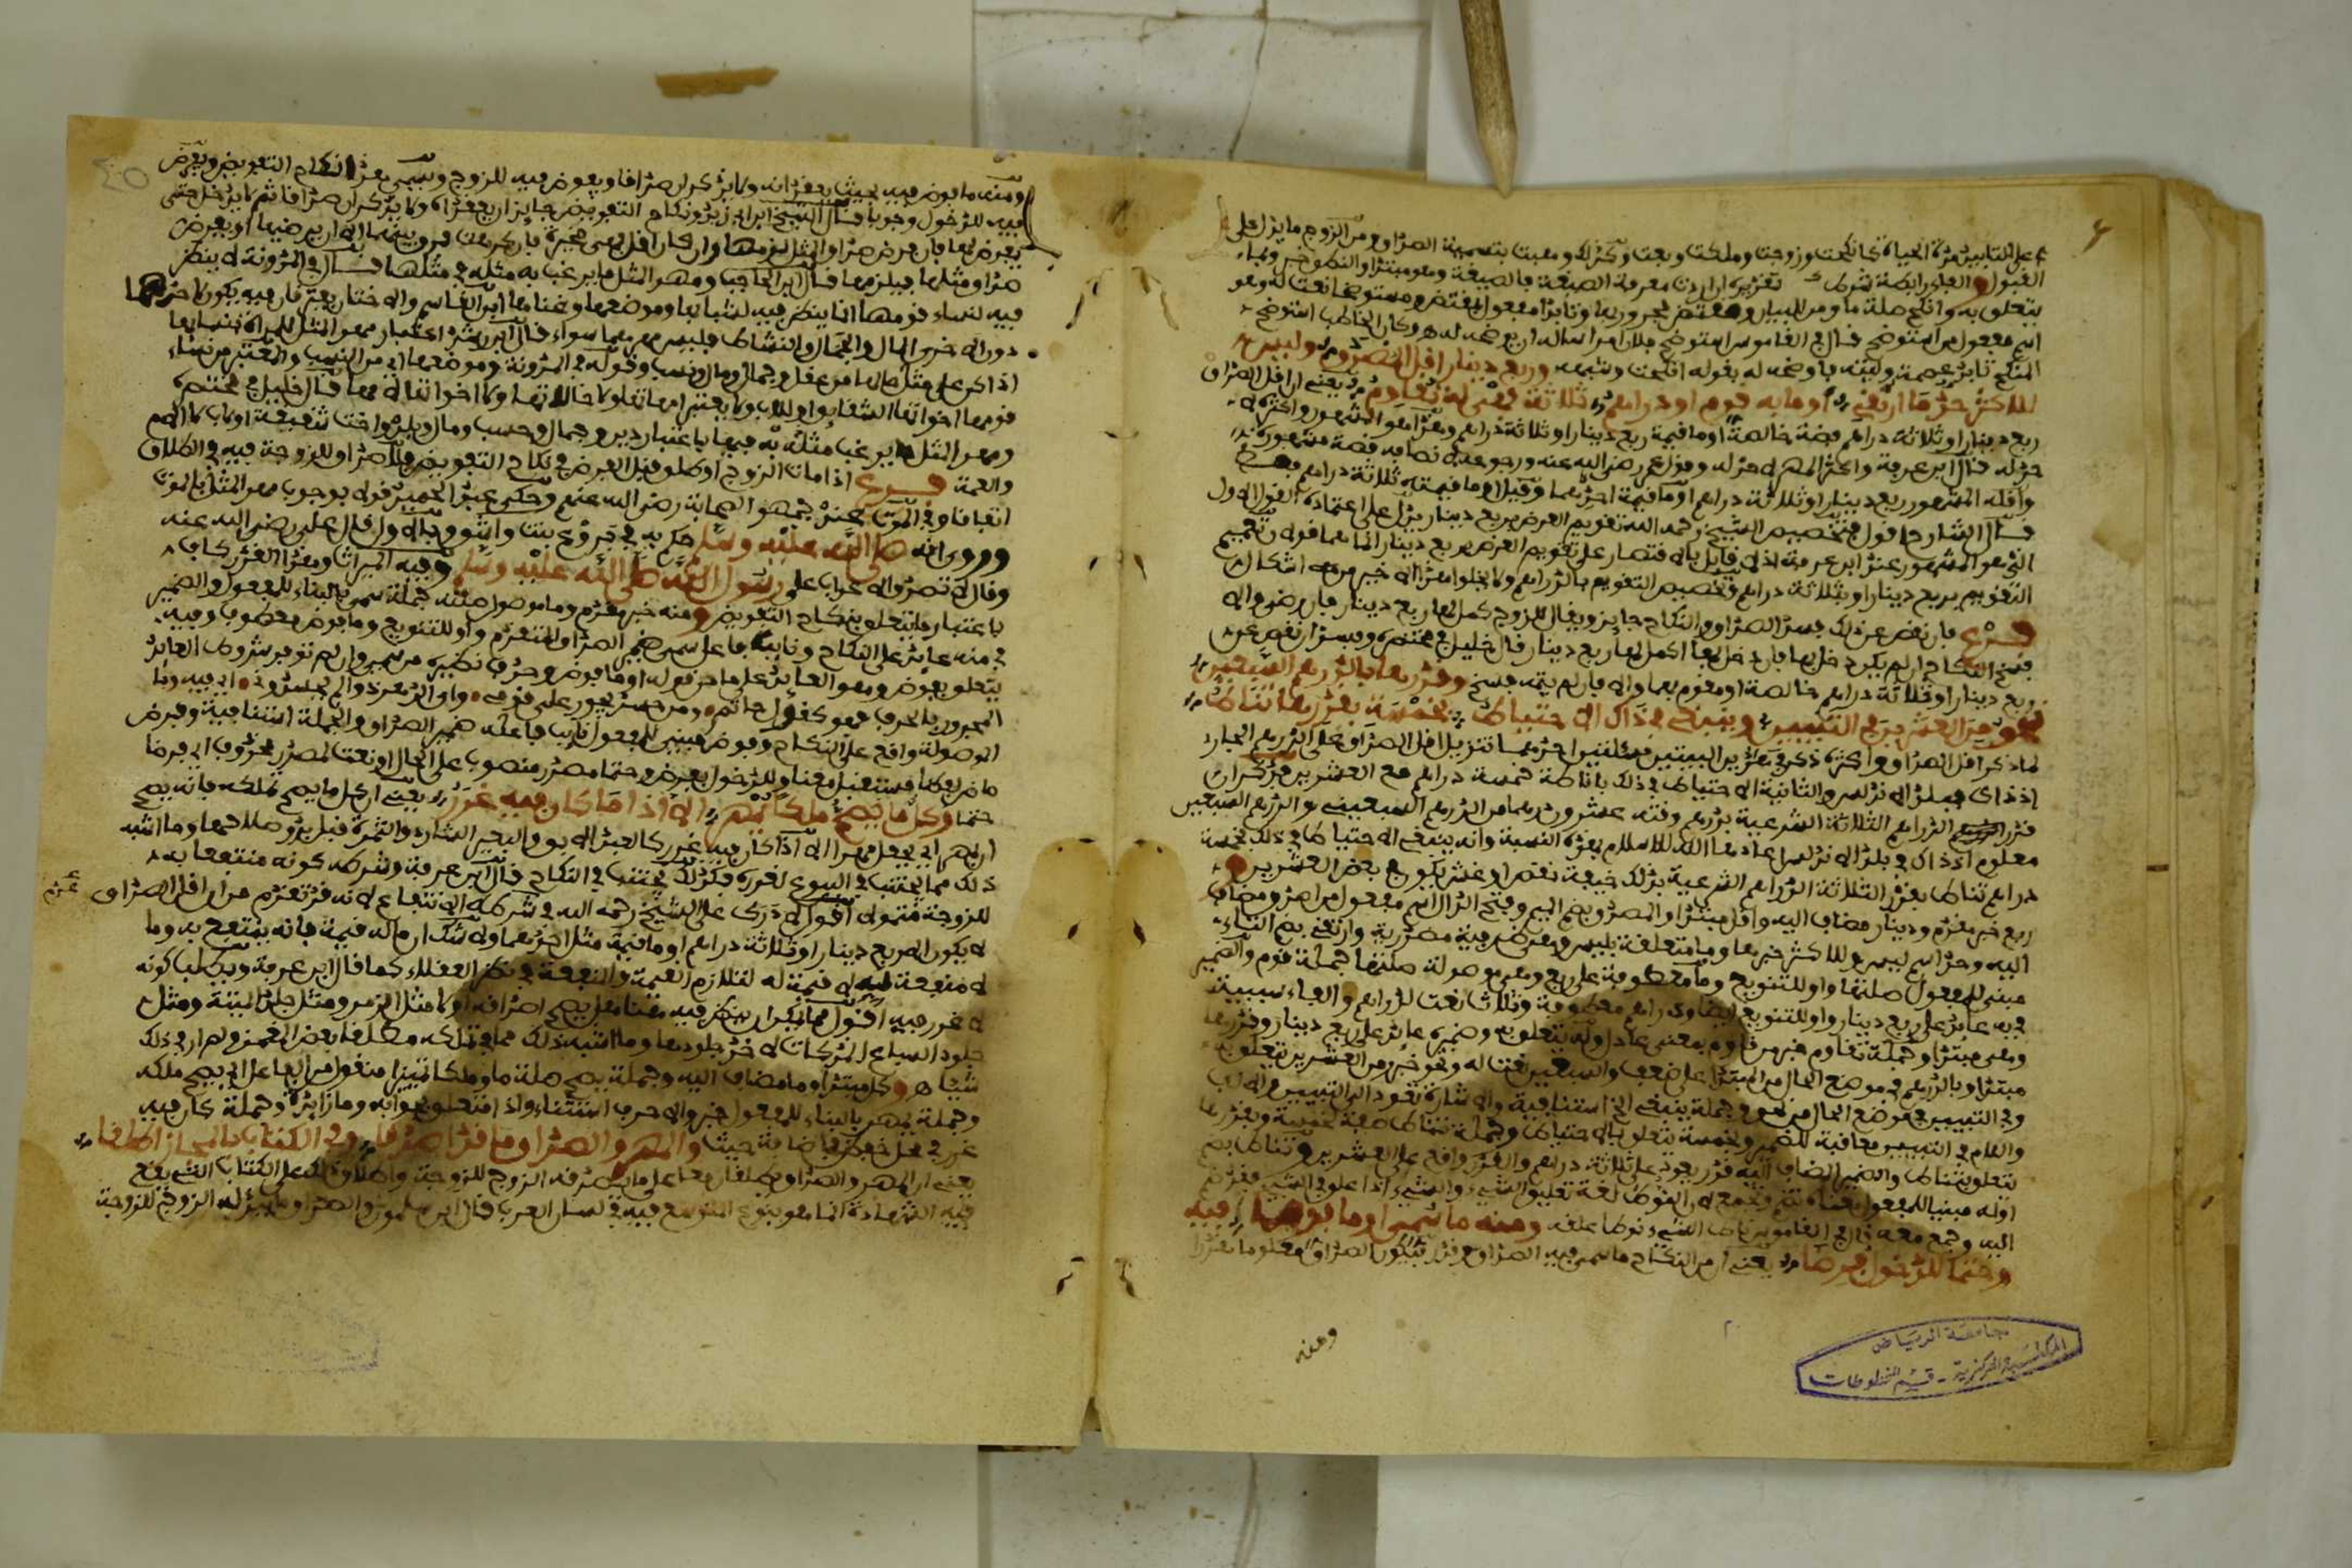 على التأبيد مدة الحياة كأنكحت وزوجت وملكت وبعت وكذلك وهبت بتسمية الصداق ومن الزوج ما يدل على
القبول والفاء رابطة
يتعلق به وأنكح صلة ما ومن للبيان
اسم مفعول من استوضح قال في القاموس استوضح فلانا أمرا سأله أن يوضحه له وكان المخاطب استوضح
المنكح فأوضحه له بقوله أنكحت وشبهه وربع دينار أقل المصدق وليس
للأكثر حد ما ارتقي أو ما به قوم أو دراهم ثلاثة فهي له تقاوم يعني أن أقل الصداق
ربع دينار أو ثلاثة دراهم فضة خالصة أو ما قيمة ربع دينار أو ثلاثة دراهم وهذا هو المشهور وأكثره لا
حد له قال ابن عرفة وأكثر المهر لا حد له وقول عمر رضي الله عنه ورجوعه
وأقله المشهور ربع دينار أو ثلاثة دراهم أو ما قيمة أحدهما وقيل أو ما قيمته ثلاثة دراهم فقط
قال الشارح أقول تخصيص الشيخ رحمه الله تقويم العرض بربع دينار يدل على اعتماده القول الأول
الذي هو المشهور عند ابن عرفة
التقويم بربع دينار أو بثلاثة دراهم وتخصيص التقويم بالدراهم ولا يخلو هذا الأخير من إشكال
فرع فإن نقص عن ذلك فسد الصداق والنكاح جايز ويقال للزوج كمل لها ربع دينار فإن رضي وإلا
فسخ النكاح إن لم يكن دخل بها فإن دخل بها أكمل لها ربع دينار قال خليل في مختصره وفسد إن نقص عن
ربع دينار أو ثلاثة دراهم خالصة أو مقوم بهما وأتمه إن دخل وإلا فإن لم يتمه فسخ وقدرها بالدرهم السبعيني
نحو من العشرين في التبيين وينبغي في ذاك الاحتياط بخمسة بقدرها تناط
لما ذكر أقل الصداق وأكثره ذكر في هذين البيتين مسئلتين إحداهما تنزيل أقل الصداق على الدرهم الجاري
إذ ذاك ببلد الأندلس والثانية الاحتياط في ذلك بإناطة خمسة دراهم مع العشرين فذكر أن
قدر الدراهم الثلاثة الشرعية بدرهم وقته عشرون درهما من الدرهم السبعيني والدرهم السبعيني
معلوم إذ ذاك في بلد الأندلس أعادها الله للإسلام بهذه النسبة وأنه ينبغي الاحتياط في ذلك بخمسة
دراهم تناط بقدر الثلاثة الدراهم الشرعية بذلك خيفة نقص أو غش يكون في بعض العشرين
ربع خبر مقدم ودينار مضاف إليه وأقل مبتدأ والمصدق بضم الميم وفتح الدال اسم مفعول من أصدق ومضاف
إليه وحد اسم ليس وللأكثر خبرها وما متعلقة بليس وهي ظرفية مصدرية وارتقي بضم التاء
مبني للمفعول صلتها وأو للتنويع وما معطوفة على ربع وهي موصولة صلتها جملة قوم والضمير
في به عائد على ربع دينار وأو للتنويع أيضا ودراهم معطوفة وثلاث نعت لدراهم والفاء سببية
وهي مبتدأ وجملة تقاوم خبر من قاوم بمعنى عادل وله يتعلق به وضميره عائد على ربع دينار وقدرها
مبتدأ وبالدرهم في موضع الحال من المبتدأ على ضعف والسبعيني نعت له ونحو خبر ومن العشرين يتعلق به
وفي التبيين في موضع الحال من نحو وجملة ينبغي إلخ استئنافية والإشارة تعود إلى التبيين والألف
واللام في التبيين معاقبة للضمير وبخمسة يتعلق بالاحتياط وجملة تناط صفة لخمسة وبقدرها
يتعلق بتناط والضمير المضاف إليه قدر يعود على ثلاثة دراهم والقدر واقع على العشرين وتناط بضم
أوله مبنيا للمفعول معناه تضم وتجمع لأن النوط لغة تعليق الشيء والشيء إذا علق في الشيء فقد ضم
إليه وجمع معه قال في القاموس ناط الشيء نوطا علقه ومنه ما سمي أو ما فوضا فيه
وحتما للدخول فرضا يعني أن من النكاح ما سمي فيه الصداق وقدر فيكون الصداق معلوما مقدرا
ومنه
جامعة الرياض
المكتبة المركزية - قسم المخطوطات
٤٥
ومنه ما فوض فيه بحيث يعقدانه ولا يذكران صداقا ويفوض فيه للزوج ويسمى هذا نكاح التفويض ويفرض
فيه للدخول وجوبا قال الشيخ ابن أبي زيد ونكاح التفويض جايز أن يعقداه ولا يذكران صداقا ثم لا يدخل حتى
يفرض لها فإن فرض صداق المثل لزمها وإن كان أقل فهي مخيرة فإن كرهت فرق بينهما إلا أن يرضيها أو يفرض
صداق مثلها فيلزمها قال ابن الحاجب ومهر المثل ما يرغب به مثله في مثلها قال في المدونة لا ينظر
فيه لنساء قومها إنما ينظر فيه لشبابها وموضعها وغناها ابن القاسم والأختان يفترقان فيه يكون لإحداهما
دون الأخرى المال والجمال والشطاط فليس مهرهما سواء قال ابن رشد اعتبار مهر المثل للمرأة بنسائها
إذا كن على مثل حالها من عقل وجمال ومال ونسب وقوله في المدونة وموضعها أي من النسب والمعتبر من نساء
قومها أخواتها الشقايق أو للأب ولا يعتبر أمهاتها ولا خالاتها ولا أخواتها لأمها قال خليل في مختصره
ومهر المثل ما يرغب مثله به فيها باعتبار دين وجمال وحسب ومال وبلد وأخت شقيقة أو لأب لا لأم
والعمة فرع إذا مات الزوج أو طلق قبل الفرض في نكاح التفويض فلا صداق للزوجة فيه في الطلاق
اتفاقا وفي الموت عند جمهور الصحابة رضي الله عنهم وحكى عبد الحميد قولا بوجوب مهر المثل بالموت
وروي أنه صلى الله عليه وسلم حكم به في بروع بنت واشق وبالأول قال علي رضي الله عنه
وقال لا تصدق الأعراب على رسول الله صلى الله عليه وسلم وفيه الميراث وهذا القدر كاف
باعتبار ما يتعلق بنكاح التفويض ومنه خبر مقدم وما موصول صلته جملة سمي بالبناء للمفعول والضمير
في منه عائد على النكاح ونايب فاعل سمي ضمير الصداق المتقدم وأو للتنويع وما فوض معطوف وفيه
يتعلق بفوض وهو العائد على ما من قوله أو ما فوض وحذف نظيره من سمي وإن لم توفر شروط العائد
المجرور بالحرف فهو كقول حاتم ومن حسد يجور علي قومي وأي الدهر ذو لم يحسدوني أي فيه وما
الموصولة واقع على النكاح وفوض مبني للمفعول نايب فاعله ضمير الصداق والجملة استئنافية وفرض
ماض لفظا مستقبل معنى وللدخول بفرض وحتما مصدر منصوب على الحال أو نعت لمصدر محذوف أي فرضا
حتما وكل ما يصح ملكا يمهر إلا إذا ما كان فيه غرر يعني أن كل ما يصح تملكه فإنه يصح
أن يمهر أي يجعل مهرا إلا إذا كان فيه غرر كالعبد الآبق والبعير الشارد والثمرة قبل بدو صلاحها وما أشبه
ذلك مما يجتنب في البيوع لغرره فكذلك يجتنب في النكاح قال ابن عرفة وشرطه كونه منتفعا به
للزوجة متمولا أقول لا درك على الشيخ رحمه الله في شرطه الانتفاع لأنه قد تقدم من أن أقل الصداق
لا يكون إلا ربع دينار أو ثلاثة دراهم أو ما قيمته مثل أحدهما ولا شك أن ما له قيمة فإنه ينتفع به وما
لا منفعة فيه لا قيمة له لتلازم القيمة والمنفعة في نظر العقلاء كما قال ابن عرفة ويطلب كونه
لا غرر فيه أقول مما يمكن أن ينظر فيه هنا هل يصح إصداقه أو لا مثل الزمر ومثل جلد الميتة ومثل
جلود السباع المذكاة لأخذ جلودها وما أشبه ذلك مما في تملكه
شقاه وكل مبتدأ وما مضاف إليه وجملة يصح صلة ما وملكا تمييز منقول من الفاعل أي يصح ملكه
وجملة يمهر بالبناء للمفعول خبر وإلا حرف استثناء وإذا متعلق بجوابه وما زائدة وجملة كان فيه
غرر في محل خفض بإضافة حيث والمهر والصداق ما قد أصدقا وفي الكتاب بالمجاز أطلقا
يعني أن المهر والصداق يطلقان معا على ما يصدقه الزوج للزوجة وإطلاق ذلك على الكتاب الذي يقع
فيه الشهادة إنما هو بنوع التوسع فيه في لسان العرب قال ابن سلمون والصداق ما يبذله الزوج للزوجة